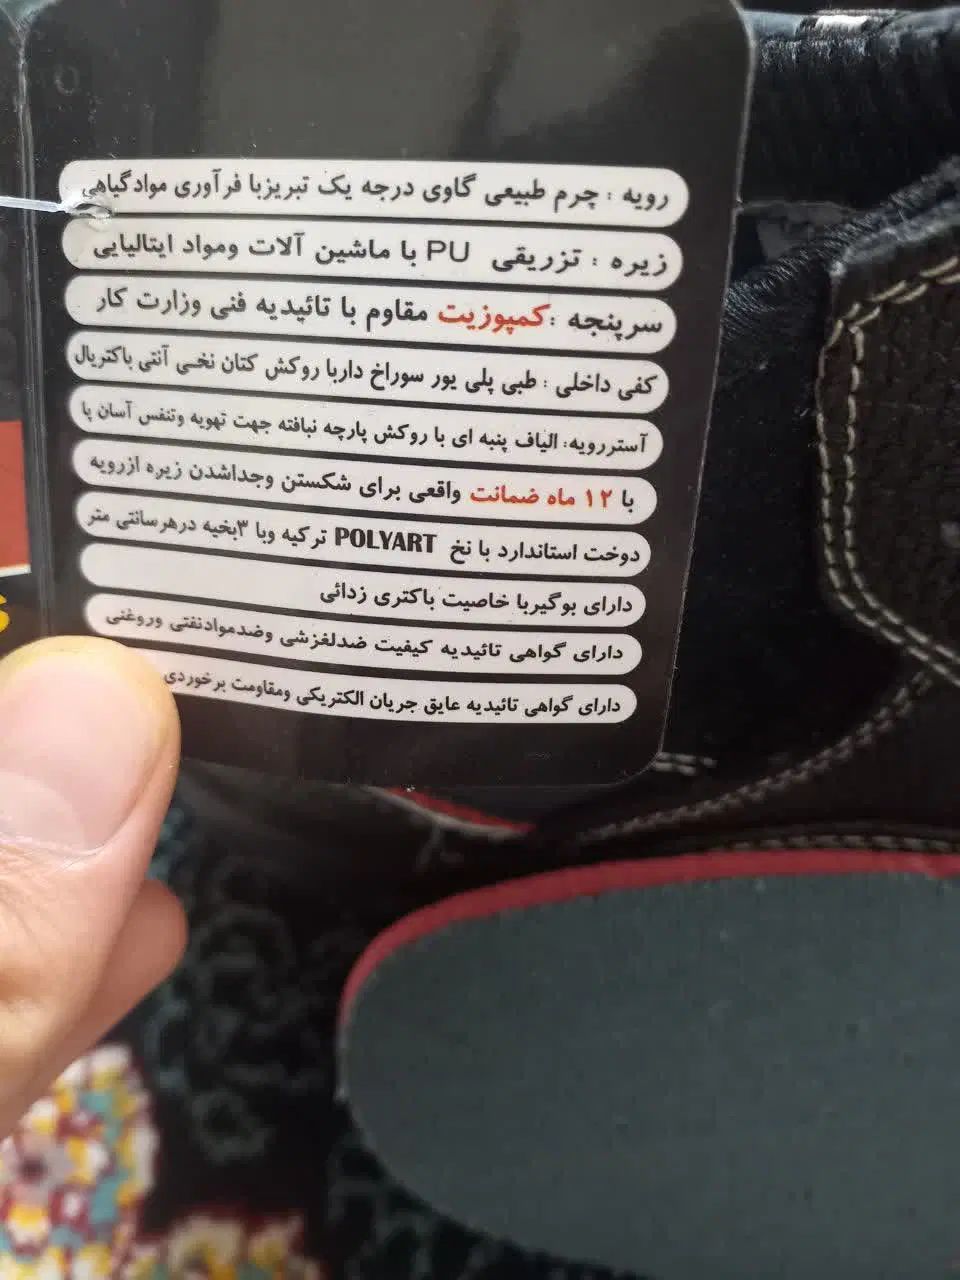 رویه : چرم طبیعی گاوی درجه یک تبریزبا فرآوری موادگیاهی
زیره : تزریقی PU با ماشین آلات ومواد ایتالیایی
سرپنجه :کمپوزیت مقاوم با تائیدیه فنی وزارت کار
کفی داخلی : طبی پلی یور سوراخ داربا روکش کتان نخی آنتی باکتریال
آستررویه: الیاف پنبه ای با روکش پارچه نبافته جهت تهویه وتنفس آسان پا
با ۱۲ ماه ضمانت واقعی برای شکستن وجداشدن زیره ازرویه
دوخت استاندارد با نخ POLYART ترکیه وبا ۳بخیه درهرسانتی متر
دارای بوگیربا خاصیت باکتری زدائی
دارای گواهی تائیدیه کیفیت ضدلغزشی وضدموادنفتی وروغنی
دارای گواهی تائیدیه عایق جریان الکتریکی ومقاومت برخوردی